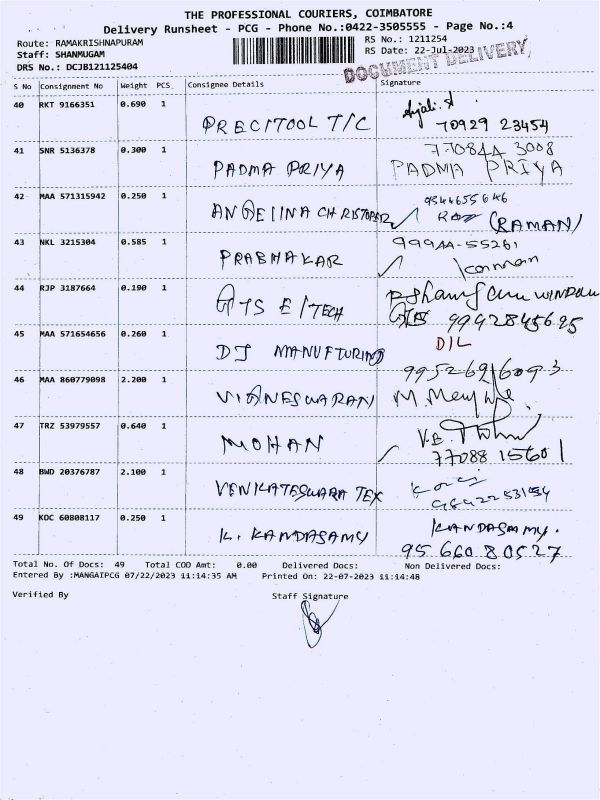 THE PROFESSIONAL COURIERS, COIMBATORE
Delivery Runsheet - PCG - Phone No.:0422-3505555 - Page No.:4
Route: RAMAKRISHNAPURAM
Staff: SHANMUGAM
DRS No.: DCJB121125404
RS No.: 1211254
RS Date: 22-Jul-2023
DOCUMENT DELIVERY
S No Consignment No Weight PCS Consignee Details Signature
40 RKT 9166351 0.690 1 PRECITOOL T/C Anjali.A
70929 23454
41 SNR 5136378 0.300 1 PADMA PRIYA 770844 3008
PADMA PRIYA
42 MAA 571315942 0.250 1 ANGELINA CHRISTOPER 9344655646
(RAMAN)
43 NKL 3215304 0.585 1 PRABHAKAR 99944-55261
44 RJP 3187664 0.190 1 GTS E/TECH WINDOW
GTS 99942845625
45 MAA 571654656 0.260 1 DJ MANUFTURING D/L
46 MAA 860779098 2.200 1 VIGNESWARAN 9952696093
47 TRZ 53979557 0.640 1 MOHAN V.B.
77088 15601
48 BWD 20376787 2.100 1 VENKATESWARA TEX
49 KOC 60808117 0.250 1 K. KANDASAMY KANDASAMY.
95 660 80527
Total No. Of Docs: 49 Total COD Amt: 0.00 Delivered Docs: Non Delivered Docs:
Entered By :MANGAIPCG 07/22/2023 11:14:35 AM Printed On: 22-07-2023 11:14:48
Verified By Staff Signature